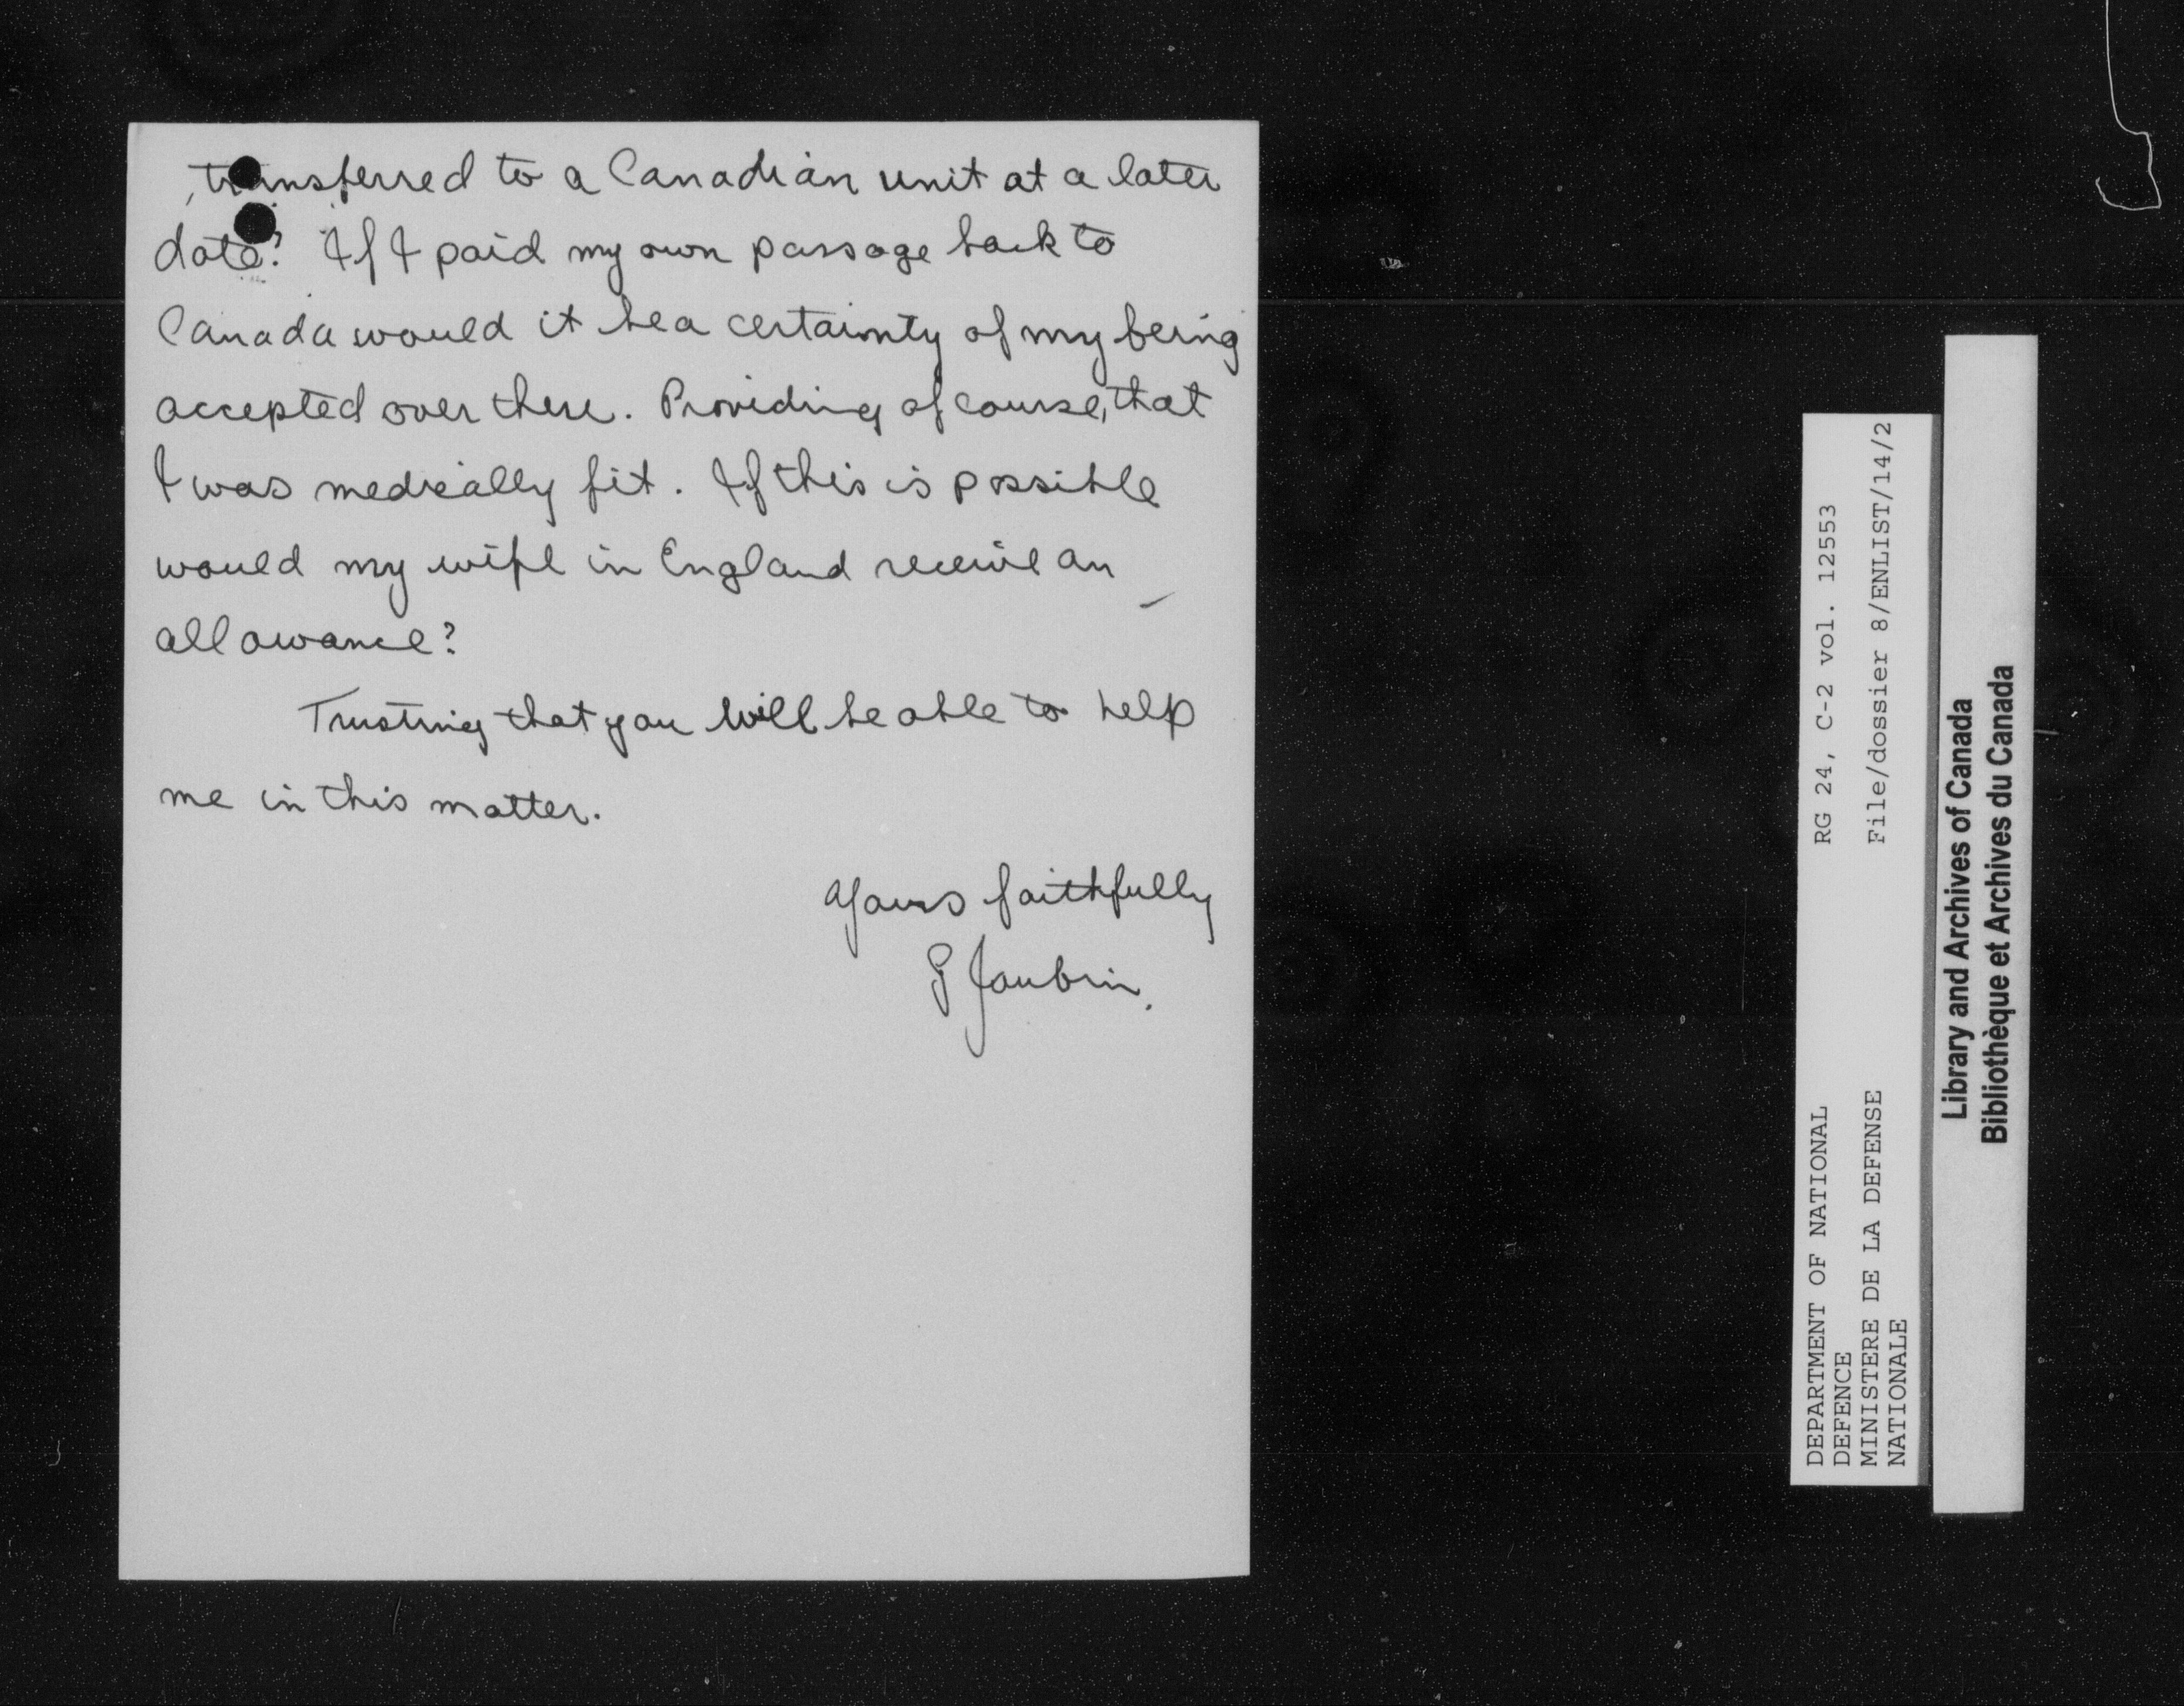 transferred to a Canadian unit at a later
date? If I paid my own passage back to
Canada would it be a certainty of my being
accepted over there. Providing of course, that
I was medically fit. If this is possible
would my wife in England receive an
allowance?
Trusting that you will be able to help
me in this matter.
Yours faithfully
G Jaubrin.
RG 24, C-2 vol. 12553
File/dossier 8/ENLIST/14/2
DEPARTMENT OF NATIONAL
DEFENCE
MINISTERE DE LA DEFENSE
NATIONALE
Library and Archives of Canada
Bibliothèque et Archives du Canada